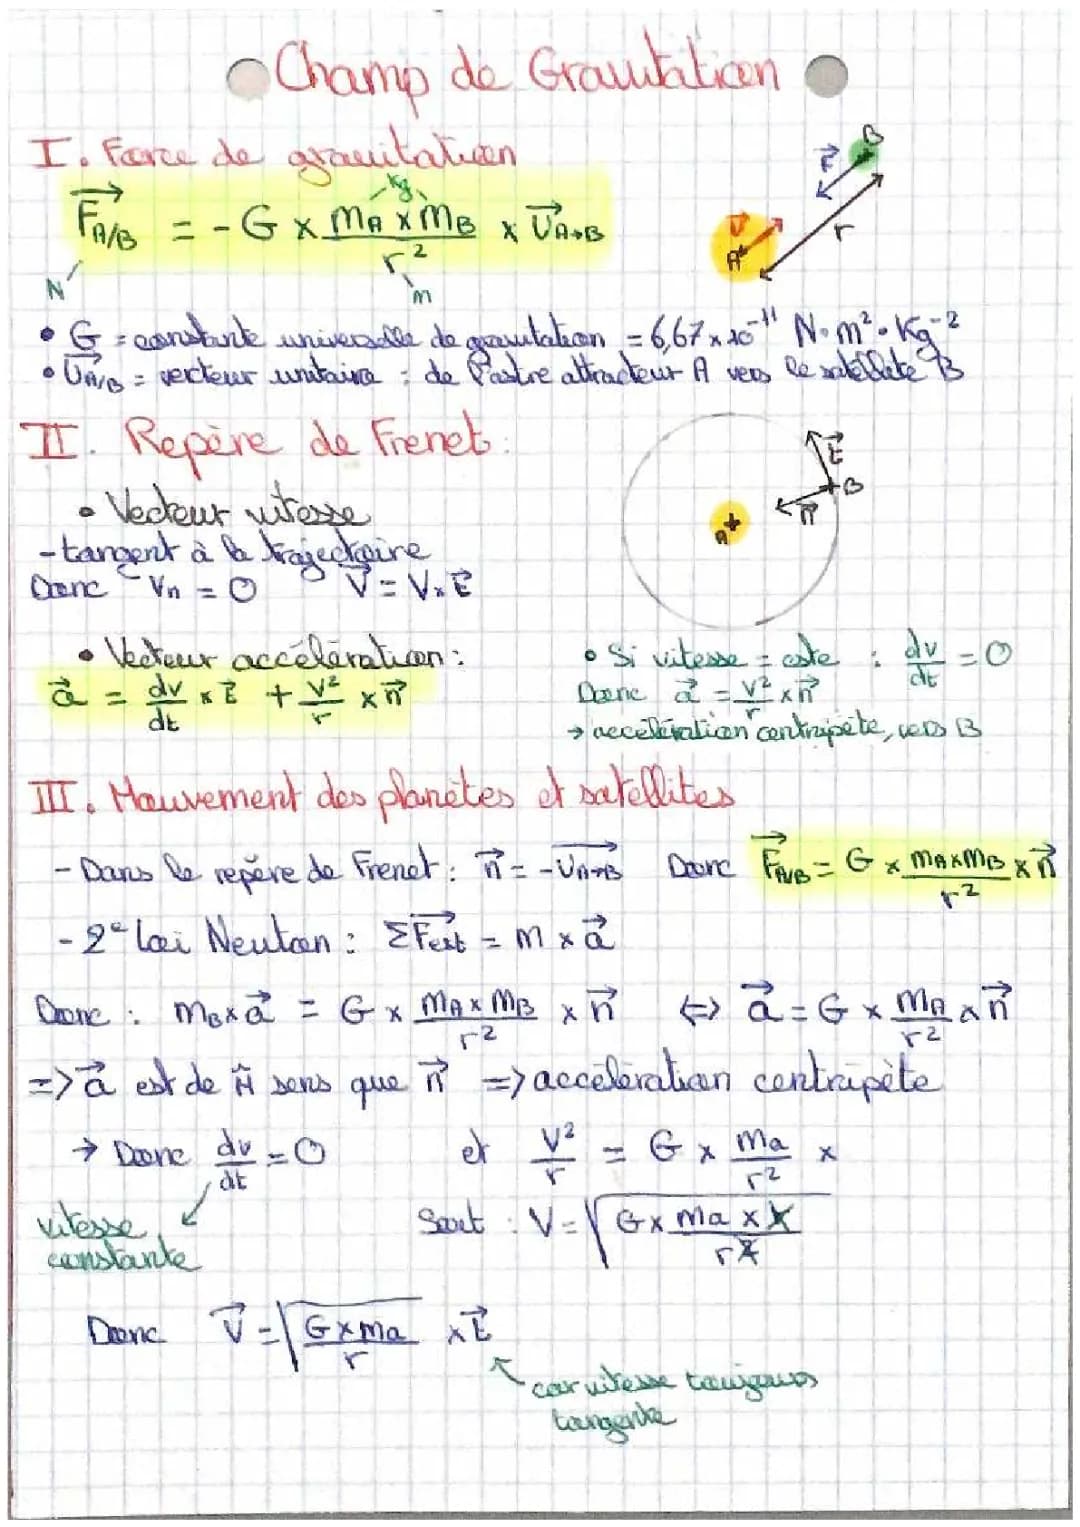 Champ de Gravitation
I. Force de gravitation
F⃗A/B = - G × (mA × mB)/r² × U⃗A→B
kg
N
m
B
F⃗
r
U⃗
A
• G = constante universelle de gravitation = 6,67 × 10⁻¹¹ N·m²·Kg⁻²
• U⃗A/B = vecteur unitaire : de l'astre attracteur A vers le satellite B
II. Repère de Frenet :
t⃗
B
n⃗
A
• Vecteur vitesse
- tangent à la trajectoire
Donc Vn = 0 V⃗ = V × t⃗
• Vecteur accélération :
a⃗ = dv/dt × t⃗ + v²/r × n⃗
• Si vitesse = cste : dv/dt = 0
Donc a⃗ = v²/r × n⃗
→ accélération centripète, vers B
III. Mouvement des planètes et satellites
- Dans le repère de Frenet : n⃗ = - U⃗A→B Donc F⃗A/B = G × (mA×mB)/r² × n⃗
- 2e loi Newton : ΣF⃗ext = m × a⃗
Donc : mB × a⃗ = G × (mA × mB)/r² × n⃗ ⇔ a⃗ = G × mA/r² × n⃗
=> a⃗ est de m̂ sens que n⃗ => accélération centripète
→ Donc dv/dt = 0 et v²/r = G × ma/r² ×
vitesse constante
Soit : V = √(G × ma × r/r²)
Donc V⃗ = √(G × ma/r) × t⃗
car vitesse toujours
tangente